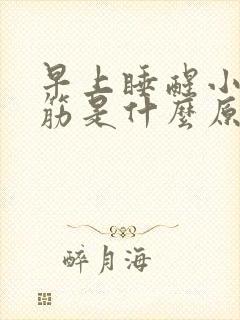 早上睡醒小
筋是什麼原
醉月海